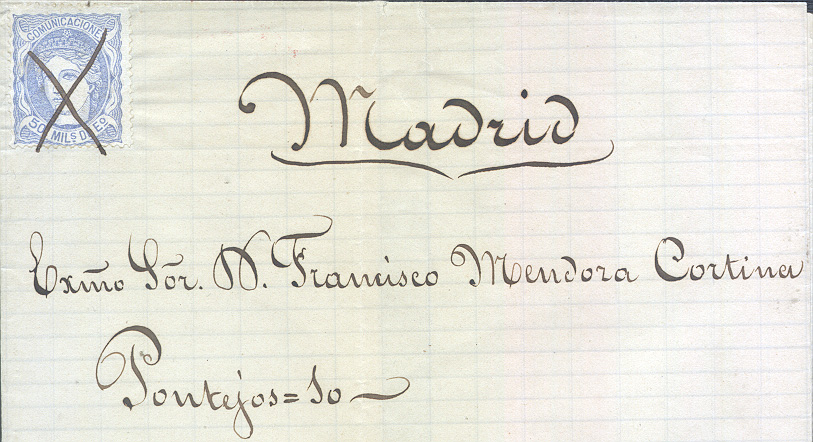 COMUNICACIONES
50 MILS DE Eº
Madrid
Exmo Sor. D. Francisco Mendoza Cortina
Pontejos = 10